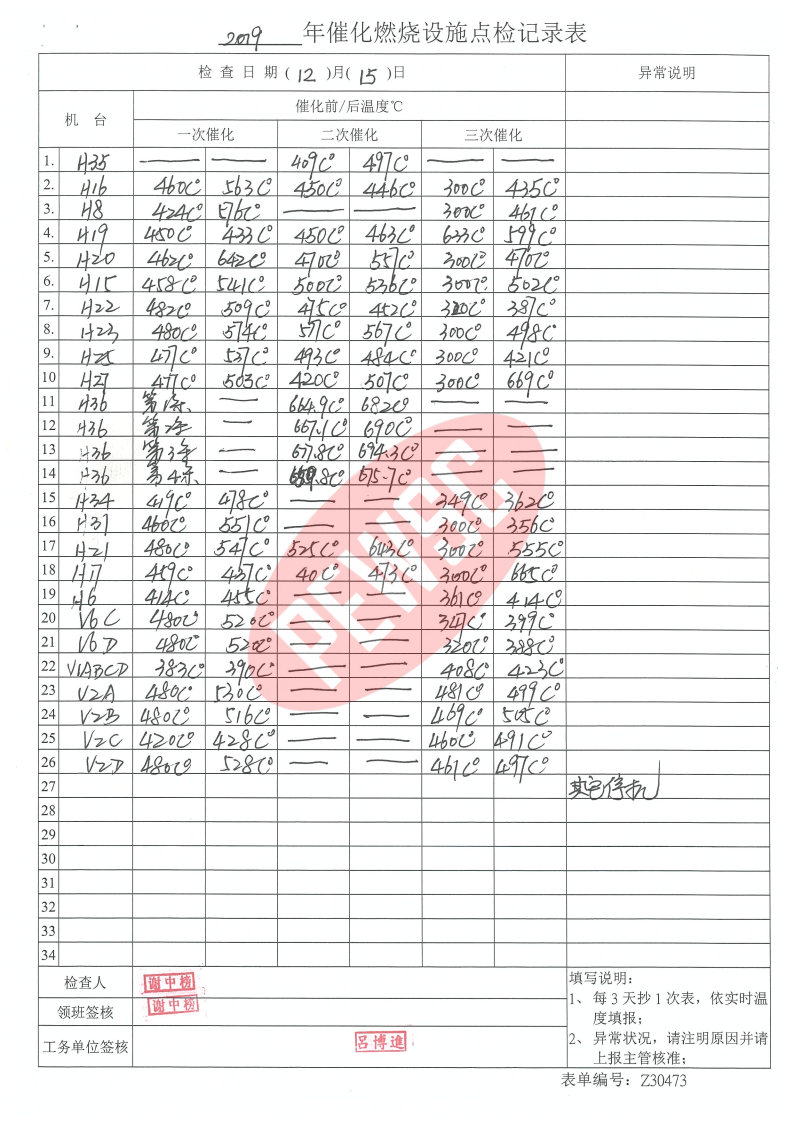 2019 年催化燃烧设施点检记录表
检 查 日 期 ( 12 )月( 15 )日 异常说明
机 台 催化前/后温度℃
一次催化 二次催化 三次催化
1. H35 — — 409C° 497C° — —
2. H16 460C° 563C° 450C° 446C° 300C° 435C°
3. H8 424C° 576C° — — 300C° 461C°
4. H19 450C° 433C° 450C° 463C° 633C° 599C°
5. H20 462C° 642C° 470C° 557C° 300C° 470C°
6. H15 458C° 541C° 500C° 536C° 300C° 502C°
7. H22 482C° 509C° 475C° 452C° 320C° 387C°
8. H23 480C° 574C° 577C° 567C° 300C° 498C°
9. H25 477C° 537C° 493C° 484C° 300C° 421C°
10 H27 477C° 503C° 420C° 507C° 300C° 669C°
11 H36 第1条 — 664.9C° 682C°
12 H36 第2条 — 667.1C° 690C° — —
13 H36 第3条 — 677.8C° 694.3C° — —
14 H36 第4条 — 659.8C° 675.7C° — —
15 H34 419C° 478C° — — 349C° 362C°
16 H37 460C° 551C° — — 300C° 356C°
17 H21 480C° 547C° 525C° 643C° 300C° 555C°
18 H17 459C° 437C° 40C° 473C° 300C° 665C°
19 H6 414C° 455C° — — 361C° 414C°
20 V6C 480C° 520C° — — 347C° 399C°
21 V6D 480C° 520C° — — 320C° 388C°
22 V1ABCD 383C° 390C° — — 408C° 423C°
23 V2A 480C° 530C° — — 481C° 499C°
24 V2B 480C° 516C° — — 469C° 505C°
25 V2C 420C° 428C° — — 460C° 491C°
26 V2D 480C° 528C° — — 461C° 497C°
27 其它停机
28
29
30
31
32
33
34
PEWSC
检查人 谢中榜
领班签核 谢中榜
工务单位签核 吕博進
填写说明:
1、 每 3 天抄 1 次表，依实时温
度填报;
2、 异常状况，请注明原因并请
上报主管核准;
表单编号: Z30473